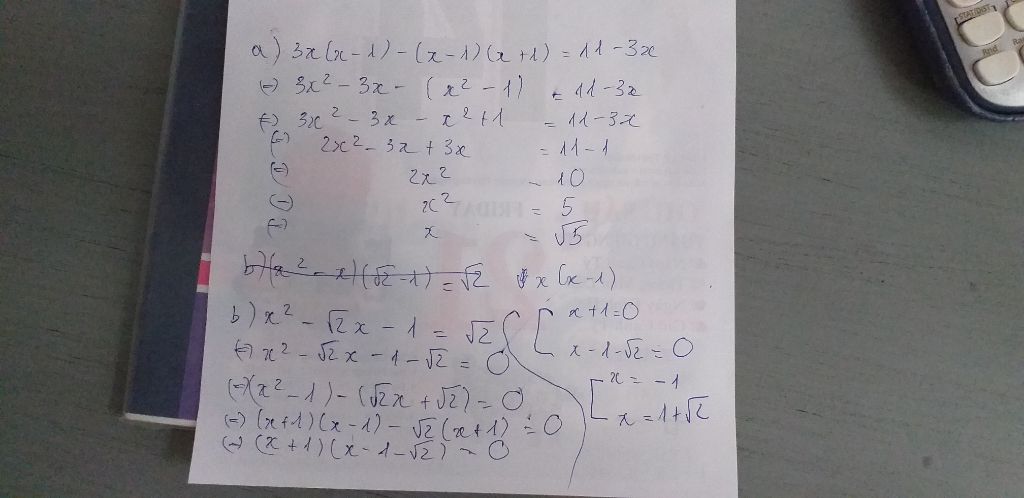 a) 3x(x-1) - (x-1)(x+1) = 11 - 3x
(=) 3x² - 3x - (x² - 1) = 11 - 3x
(=) 3x² - 3x - x² + 1 = 11 - 3x
(=) 2x² - 3x + 3x = 11 - 1
(=) 2x² = 10
(=) x² = 5
(=) x = √5
b) (x² - x)(√2 - 1) = √2 x(x-1)
b) x² - √2x - 1 = √2
(=) x² - √2x - 1 - √2 = 0
(=) (x² - 1) - (√2x + √2) = 0
(=) (x+1)(x-1) - √2(x+1) = 0
(=) (x+1)(x-1-√2) = 0
x + 1 = 0
x - 1 - √2 = 0
x = -1
x = 1 + √2
STATDIST
Rnd